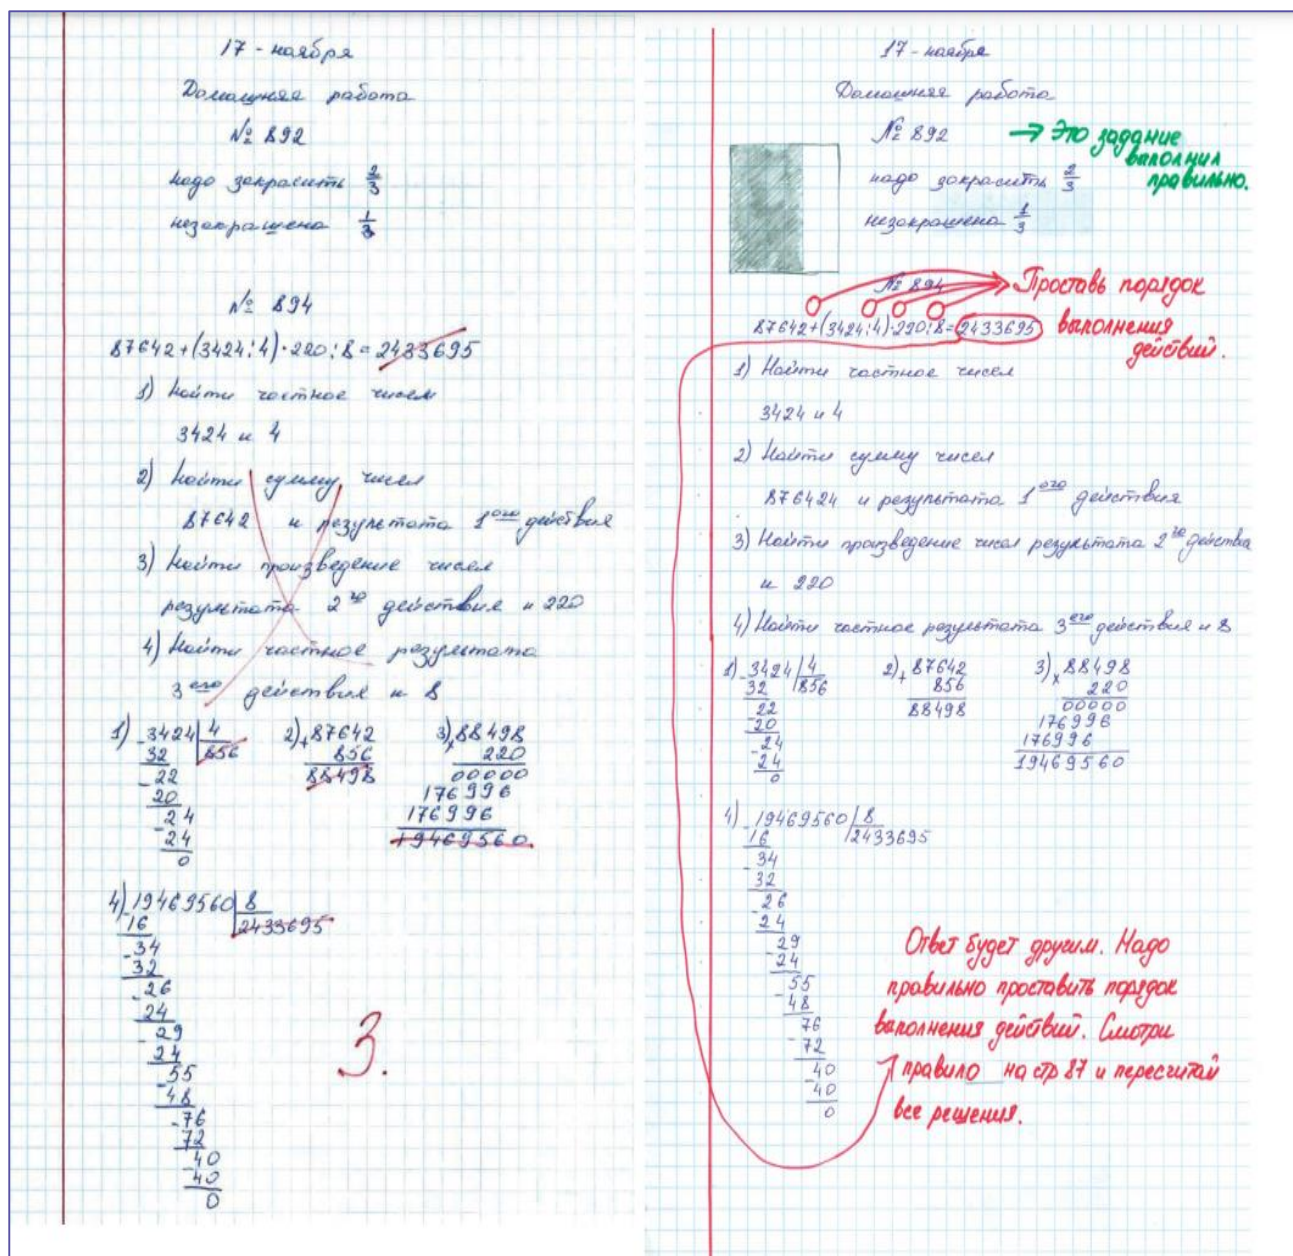 17 - ноября
Домашняя работа
№ 892
надо закрасить 2/3
незакрашена 1/3
№ 894
87642+(3424:4)·220:8=2433695
1) Найти частное чисел
3424 и 4
2) Найти сумму чисел
87642 и результата 1ого действия
3) Найти произведение чисел
результата 2го действия и 220
4) Найти частное результата
3его действия и 8
1) -3424|4
32 856
-22
20
-24
24
0
2) +87642
856
88498
3) ×88498
220
00000
176996
176996
19469560
4) -19469560|8
16 2433695
-34
32
-26
24
-29
24
-55
48
-76
72
-40
40
0
3.
17 - ноября
Домашняя работа
№ 892
→ Это задание
выполнил
правильно.
надо закрасить 2/3
незакрашена 1/3
№ 894
Проставь порядок
выполнения
действий.
87642+(3424:4)·220:8=2433695
1) Найти частное чисел
3424 и 4
2) Найти сумму чисел
876424 и результата 1ого действия
3) Найти произведение чисел результата 2го действа
и 220
4) Найти частное результата 3его действия и 8
1) -3424|4
32 856
-22
20
-24
24
0
2) +87642
856
88498
3) ×88498
220
00000
176996
176996
19469560
4) -19469560|8
16 2433695
-34
32
-26
24
-29
24
-55
48
-76
72
-40
40
0
Ответ будет другим. Надо
правильно проставить порядок
выполнения действий. Смотри
правило на стр 87 и пересчитай
все решения.